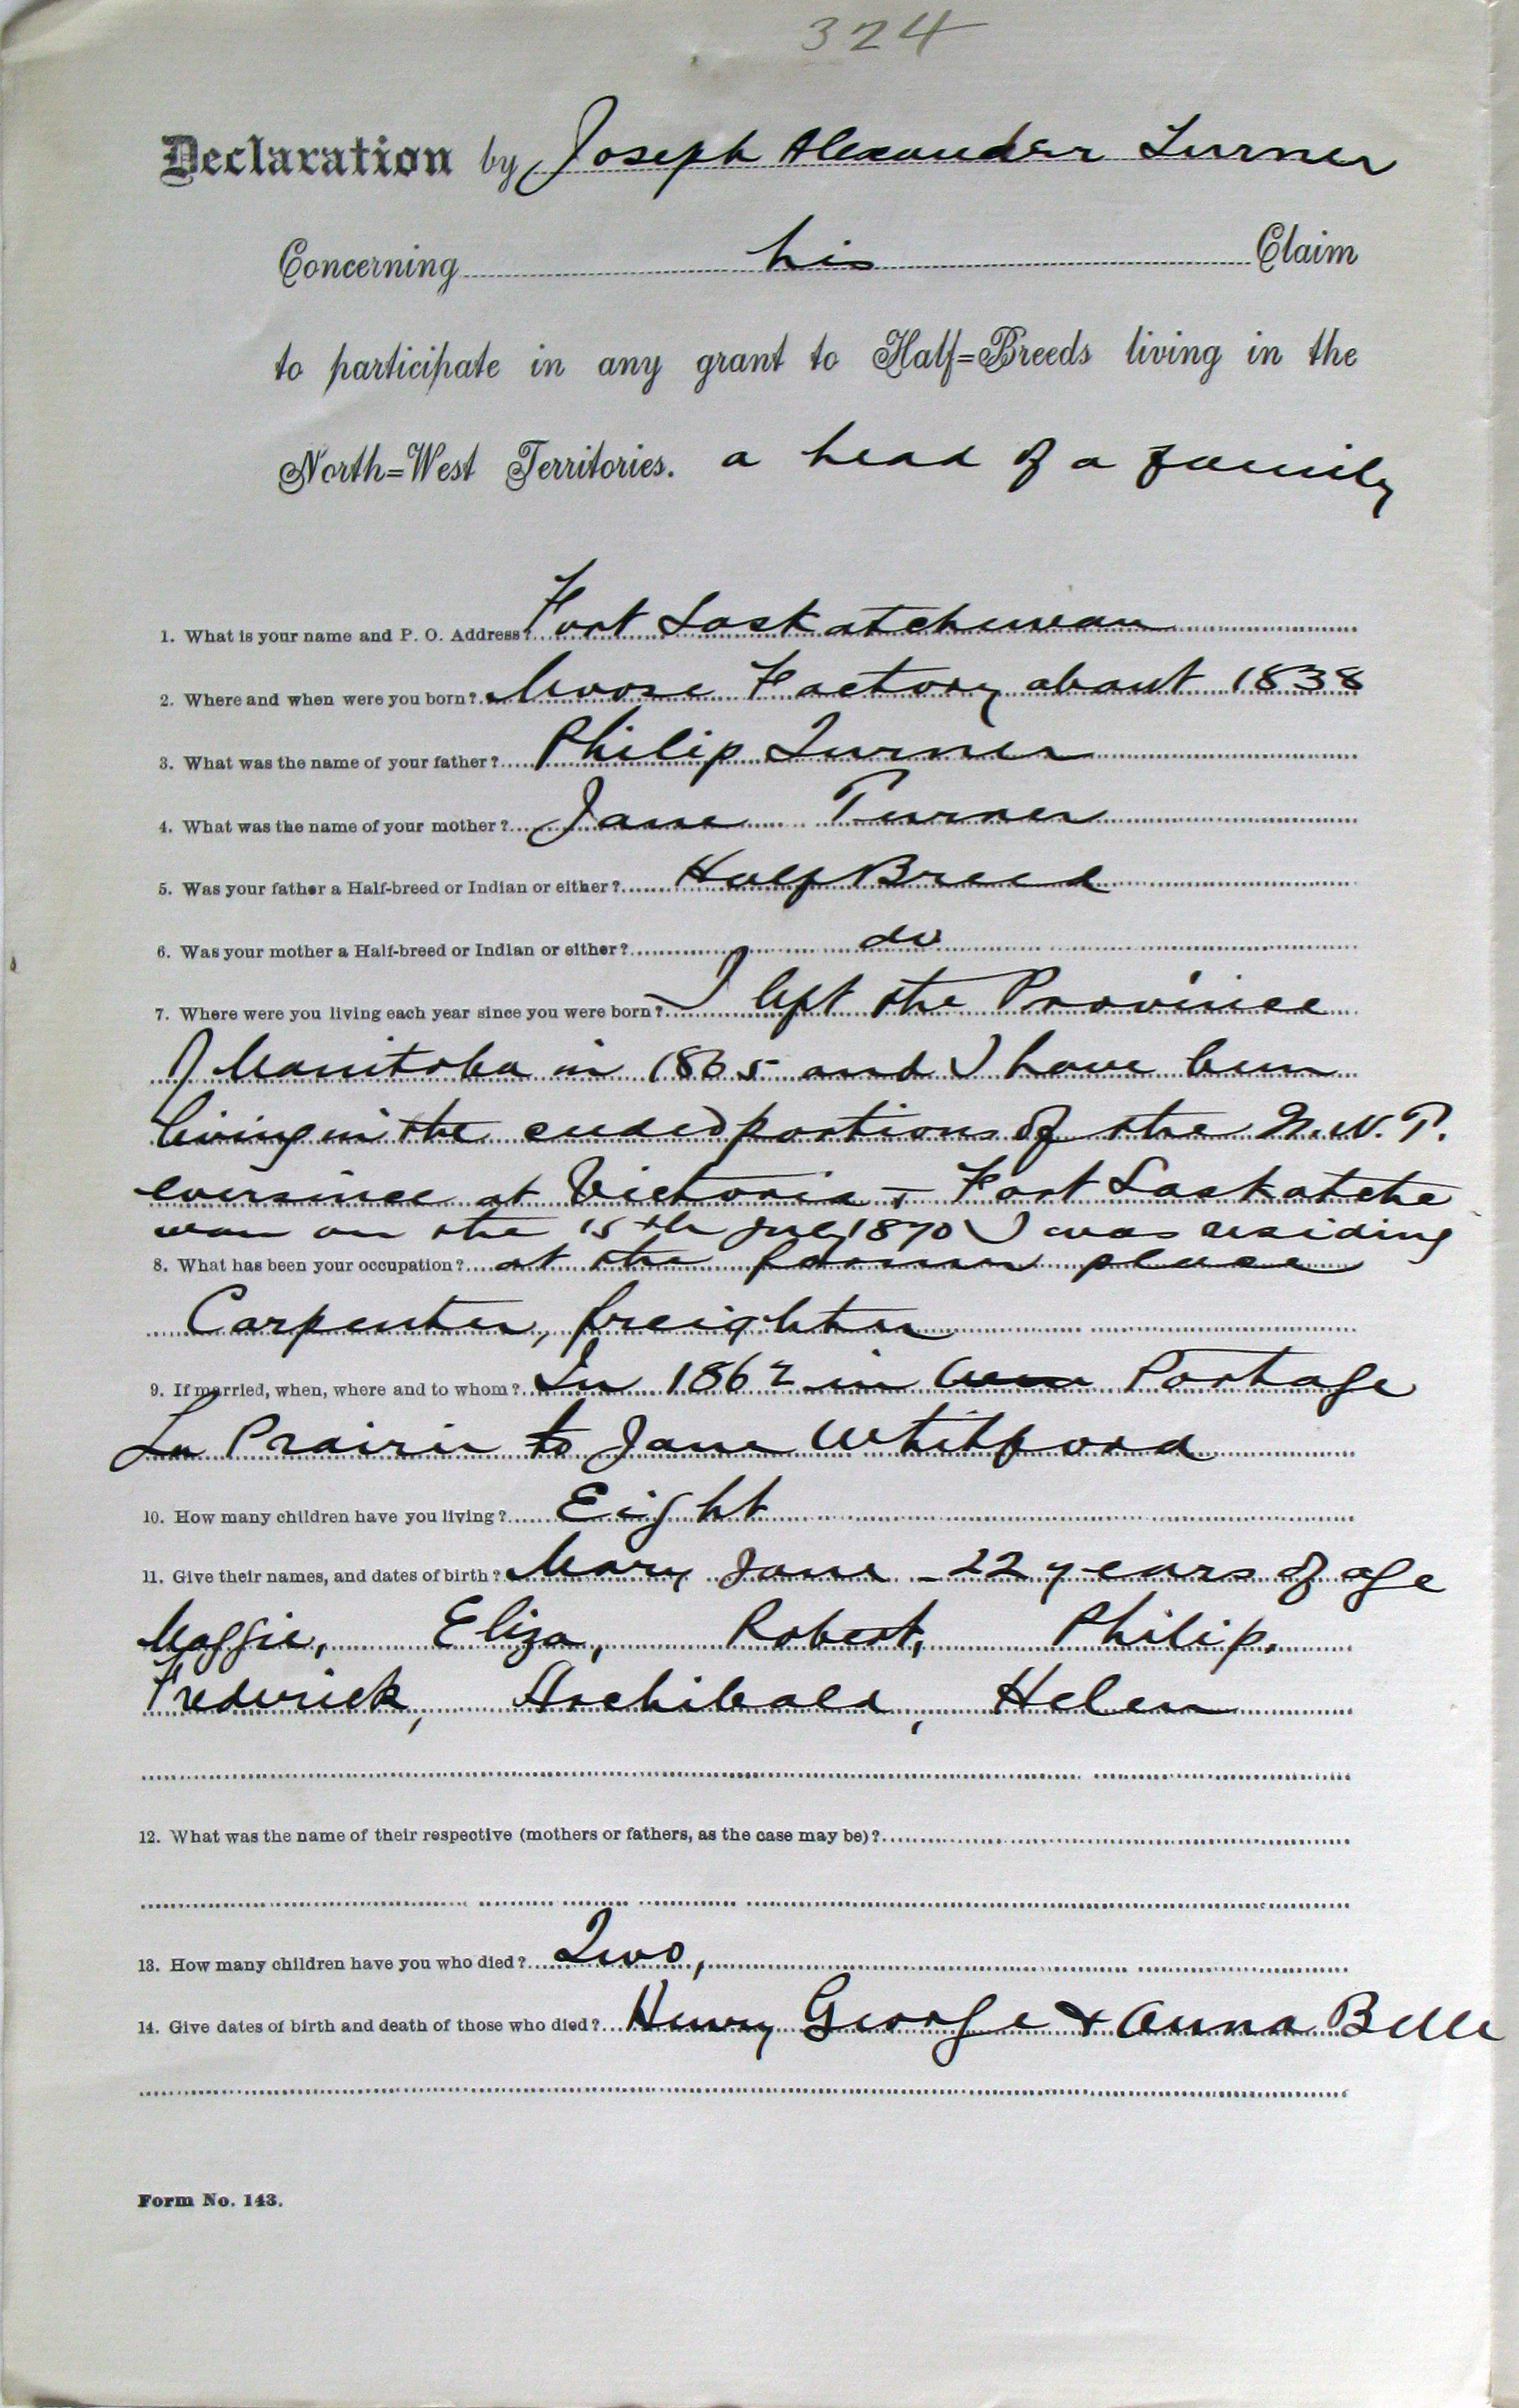 324
Declaration by Joseph Alexander Turner
Concerning his Claim
to participate in any grant to Half=Breeds living in the
North=West Territories. a head of a family
1. What is your name and P. O. Address? Fort Saskatchewan
2. Where and when were you born? Moose Factory about 1838
3. What was the name of your father? Philip Turner
4. What was the name of your mother? Jane Turner
5. Was your father a Half-breed or Indian or either? Half Breed
6. Was your mother a Half-breed or Indian or either? do
7. Where were you living each year since you were born? I left the Province
of Manitoba in 1865 and I have been
living in the ceded portions of the N.W.T.
ever since at Victoria + Fort Saskatche
wan on the 15th July 1870 I was residing
8. What has been your occupation? at the former place
Carpenter, freighter
9. If married, when, where and to whom? In 1862 in Portage
La Prairie to Jane Whitford
10. How many children have you living? Eight
11. Give their names, and dates of birth? Mary Jane - 22 years of age
Maggie, Eliza, Robert, Philip,
Frederick, Archibald, Helen
12. What was the name of their respective (mothers or fathers, as the case may be)?
13. How many children have you who died? Two,
14. Give dates of birth and death of those who died? Henry George & Anna Belle
Form No. 143.